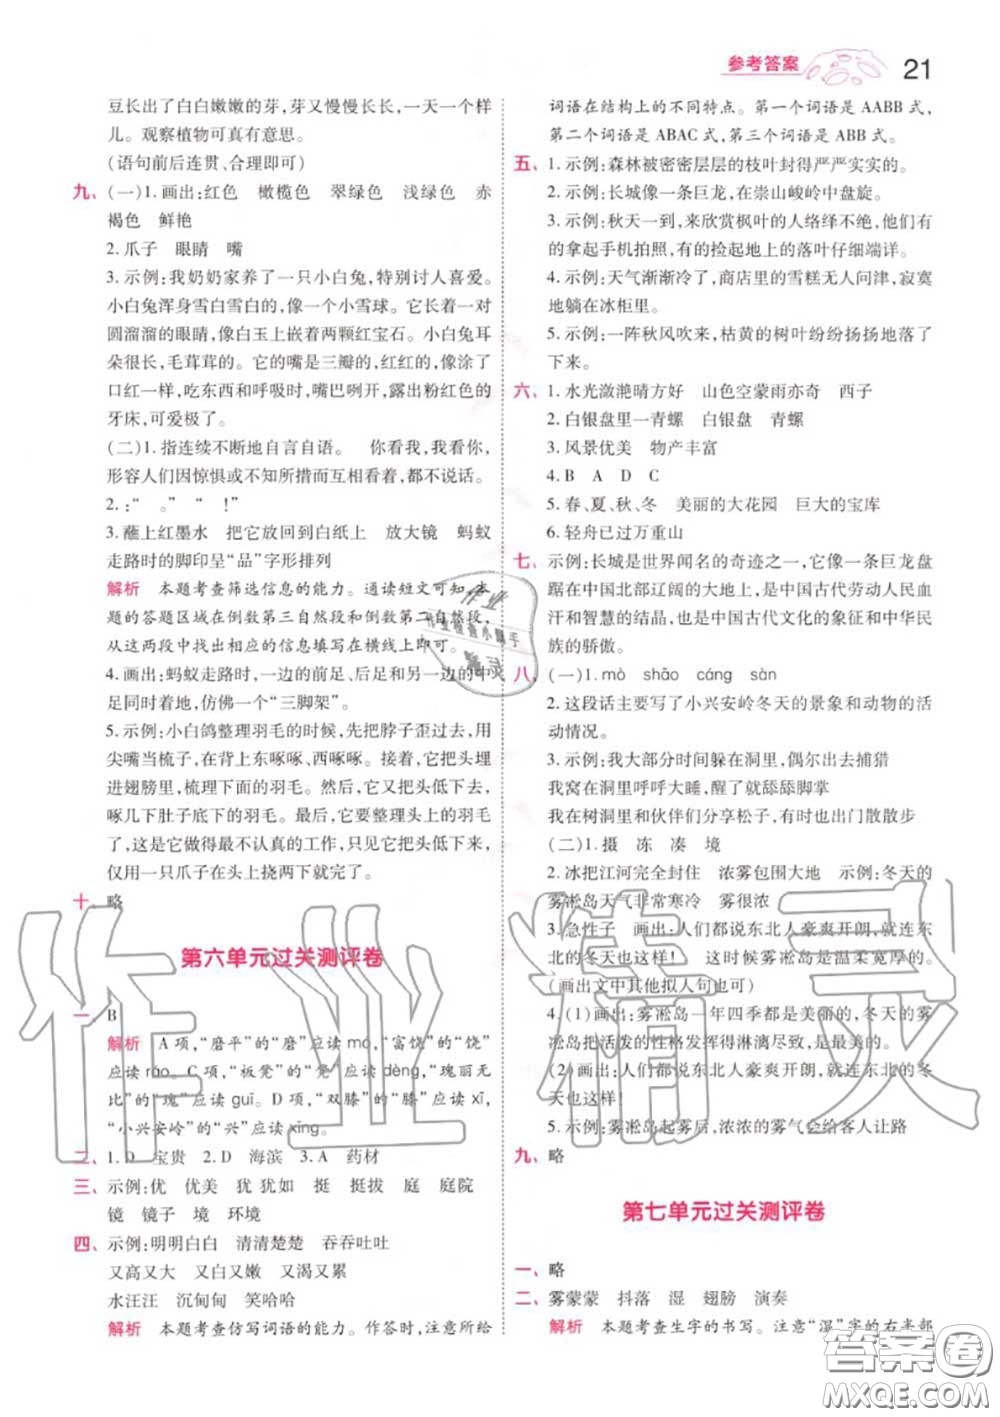 参考答案 21
豆长出了白白嫩嫩的芽,芽又慢慢长长,一天一个样
儿。观察植物可真有意思。
(语句前后连贯、合理即可)
九、(一)1.画出:红色 橄榄色 翠绿色 浅绿色 赤
褐色 鲜艳
2.爪子 眼睛 嘴
3.示例:我奶奶家养了一只小白兔,特别讨人喜爱。
小白兔浑身雪白雪白的,像一个小雪球。它长着一对
圆溜溜的眼睛,像白玉上嵌着两颗红宝石。小白兔耳
朵很长,毛茸茸的。它的嘴是三瓣的,红红的,像涂了
口红一样,吃东西和呼吸时,嘴巴咧开,露出粉红色的
牙床,可爱极了。
(二)1.指连续不断地自言自语。 你看我,我看你,
形容人们因惊惧或不知所措而就就相觑,都不说话。
2.:“ 。”“ !”
3.蘸上红墨水 把它放回到白纸上 放大镜 蚂蚁
走路时的脚印呈“品”字形排列
解析 本题考查筛选信息的能力。通读短文可知,本
题的答题区域在倒数第三自然段和倒数第二自然段,
从这两段中找出相应的信息填写在横线上即可。
4.画出:蚂蚁走路时,一边的前足、后足和另一边的中
足同时着地,仿佛一个“三脚架”。
5.示例:小白鸽整理羽毛的时候,先把脖子歪过去,用
尖嘴当梳子,在背上东啄啄、西啄啄。接着,它把头埋
进翅膀里,梳理下面的羽毛。然后,它又把头低下去,
啄几下肚子底下的羽毛。最后,它要整理头上的羽毛
了,这是它做得最不认真的工作,只见它把头低下来,
仅用一只爪子在头上挠两下就完了。
十、略
第六单元过关测评卷
一、B
解析 A项,“磨平”的“磨”应读mó,“富饶”的“饶”
应读ráo。C项,“板凳”的“凳”应读dèng,“瑰丽无
比”的“瑰”应读guī。D项,“双膝”的“膝”应读xī,
“小兴安岭”的“兴”应读xīng。
二、1.D 宝贵 2.D 海滨 3.A 药材
三、示例:优 优美 犹 犹如 挺 挺拔 庭 庭院
镜 镜子 境 环境
四、示例:明明白白 清清楚楚 吞吞吐吐
又高又大 又白又嫩 又渴又累
水汪汪 沉甸甸 笑哈哈
解析 本题考查仿写词语的能力。作答时,注意所给
词语在结构上的不同特点。第一个词语是AABB式,
第二个词语是ABAC式,第三个词语是ABB式。
五、1.示例:森林被密密层层的枝叶封得严严实实的。
2.示例:长城像一条巨龙,在崇山峻岭中盘旋。
3.示例:秋天一到,来欣赏枫叶的人络绎不绝,他们有
的拿起手机拍照,有的捡起地上的落叶仔细端详。
4.示例:天气渐渐冷了,商店里的雪糕无人问津,寂寞
地躺在冰柜里。
5.示例:一阵秋风吹来,枯黄的树叶纷纷扬扬地落了
下来。
六、1.水光潋滟晴方好 山色空蒙雨亦奇 西子
2.白银盘里一青螺 白银盘 青螺
3.风景优美 物产丰富
4.B A D C
5.春、夏、秋、冬 美丽的大花园 巨大的宝库
6.轻舟已过万重山
七、示例:长城是世界闻名的奇迹之一,它像一条巨龙盘
踞在中国北部辽阔的大地上,是中国古代劳动人民血
汗和智慧的结晶,也是中国古代文化的象征和中华民
族的骄傲。
八、(一)1.mò shāo cáng sàn
2.这段话主要写了小兴安岭冬天的景象和动物的活
动情况。
3.示例:我大部分时间躲在洞里,偶尔出去捕猎
我窝在洞里呼呼大睡,醒了就舔舔脚掌
我在树洞里和伙伴们分享松子,有时也出门散散步
(二)1.摄 冻 凑 境
2.冰把江河完全封住 浓雾包围大地 示例:冬天的
雾凇岛天气非常寒冷 雾很浓
3.急性子 画出:人们都说东北人豪爽开朗,就连东
北的冬天也这样! 这时候雾凇岛是温柔宽厚的。
(画出文中其他拟人句也可)
4.(1)画出:雾凇岛一年四季都是美丽的,冬天的雾
凇岛把活泼的性格发挥得淋漓尽致,是最美的。
(2)画出:人们都说东北人豪爽开朗,就连东北的冬
天也这样!
5.示例:雾凇岛起雾后,浓浓的雾气会给客人让路
九、略
第七单元过关测评卷
一、略
二、雾蒙蒙 抖落 湿 翅膀 演奏
解析 本题考查生字的书写。注意“湿”字的右半部
作业
作业检查小助手
精灵
作业精灵
答案圈
MXQE.COM